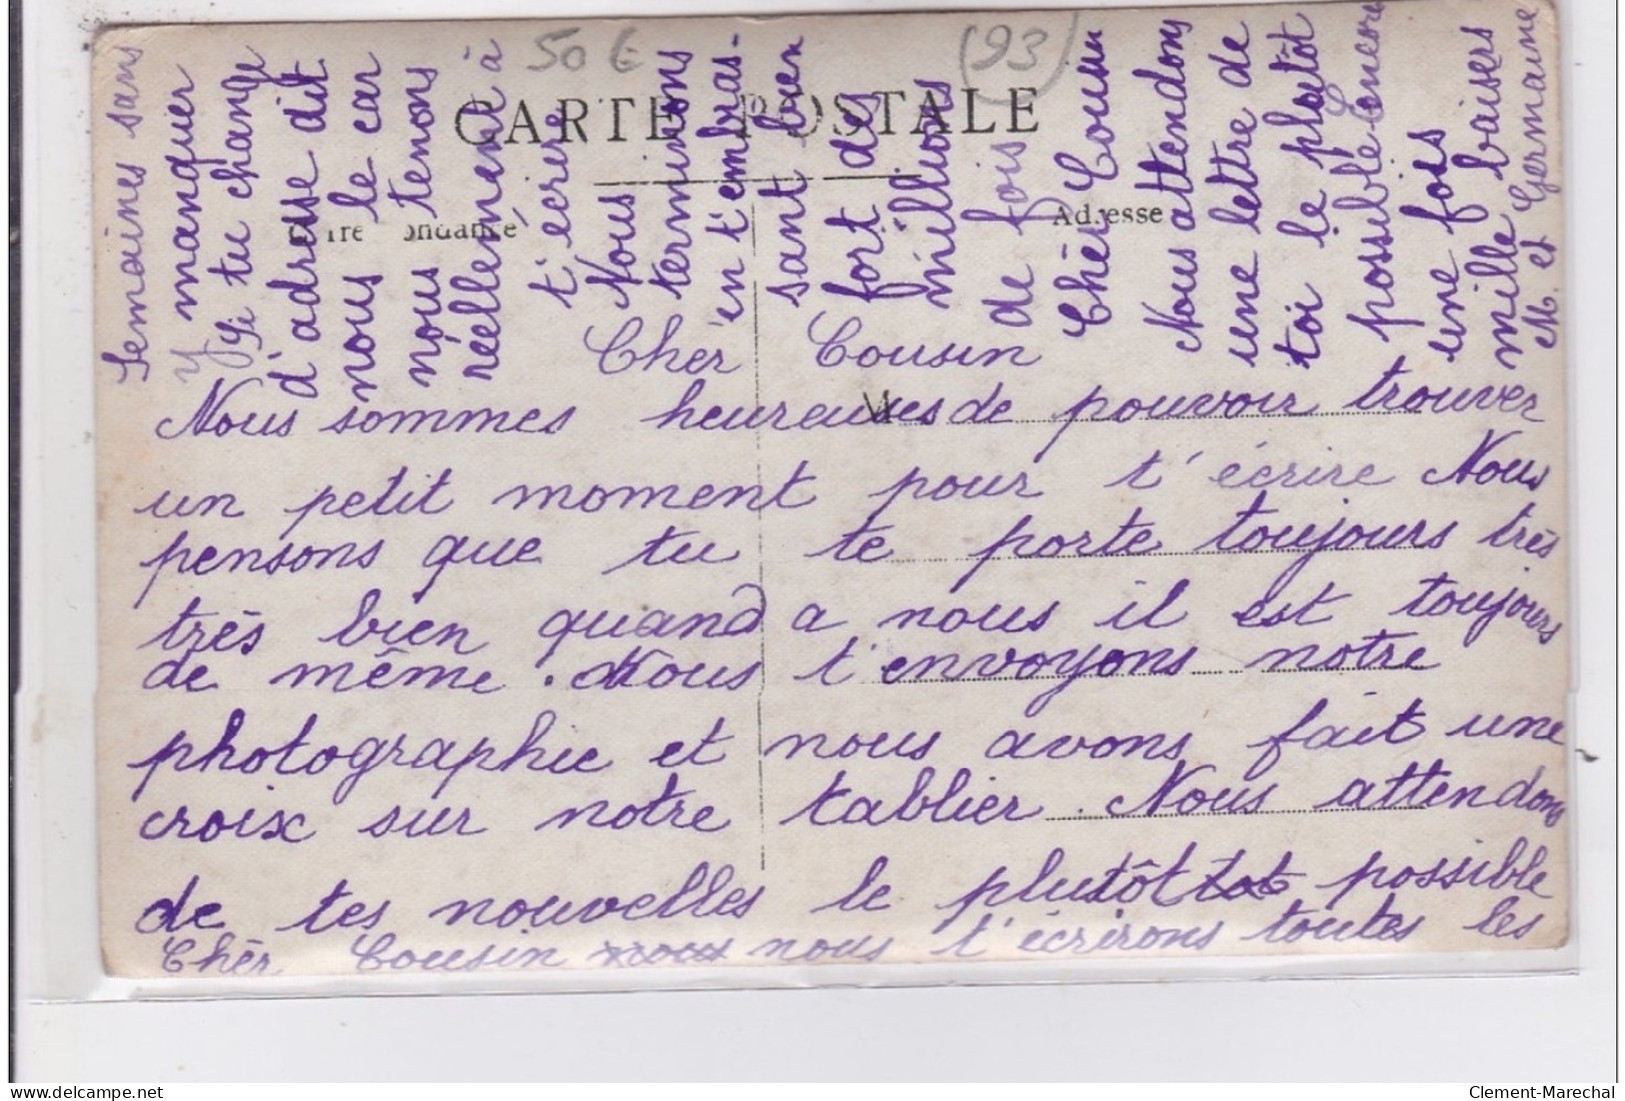 50 €
(93)
CARTE POSTALE
Adresse
Chèr Cousin
Nous sommes heureuses de pouvoir trouver
un petit moment pour t'écrire Nous
pensons que tu te porte toujours très
très bien quand a nous il est toujours
de même . Nous t'envoyons notre
photographie et nous avons fait une
croix sur notre tablier . Nous attendons
de tes nouvelles le plutôt possible
Chèr Cousin nous t'écrirons toutes les
Semaines sans
manquer
y si tu change
d'adresse dit
nous le car
nous tenons
réellement à
t'écrire
Nous
terminons
en t'embras-
sant bien
fort des
millions
de fois
Chèr Cousin
Nous attendons
une lettre de
toi le plutôt
possible Encore
une fois
mille baisers
M. et Germaine
Clement-Marechal
www.delcampe.net